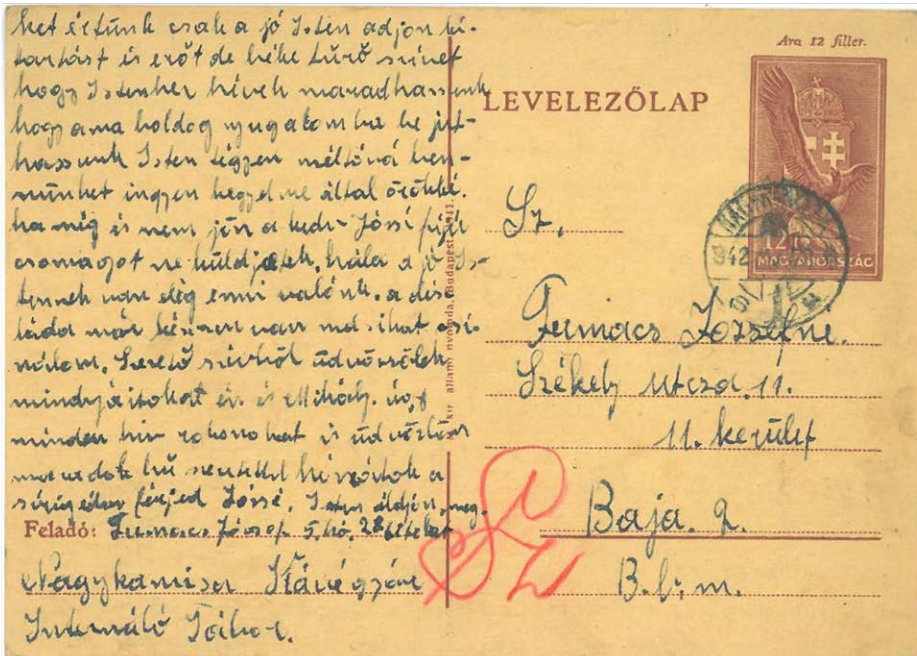 ket értünk csak a jó Isten adjon ki-
tartást és erőt de béke tűrő szivet
hogy Istenhez hivek maradhassunk
hogy ama boldog nyugalomba be jut-
hassunk Isten tégyen méltóvá ben-
nünket ingyen kegyelme által örökké.
ha még is nem jön a kedv Józsi féjét
csomagot ne küldjetek, hála a jó Is-
tennek van elég enni valónk. a
láda már készen van másikat csi-
nálom. Szerető szivből üdvözöllek
mindnyájitokat én is Mihály. úgy
minden hiv rokonokat is üdvözlöm
maradok hű hozzátok a
sirig férjed Józsi. Isten áldjon meg.
Feladó: Furnacs József 5. hó. 28
Nagykanizsa Kávégyár
Internáló Tábor.
kir. állami nyomda, Budapest. 1941.
Ára 12 fillér.
LEVELEZŐLAP
12f
MAGYARORSZÁG
942
Sz.
Furnacs Józsefné.
Székely Utcza. 11.
11. kerület
Baja. 2.
B. b. m.